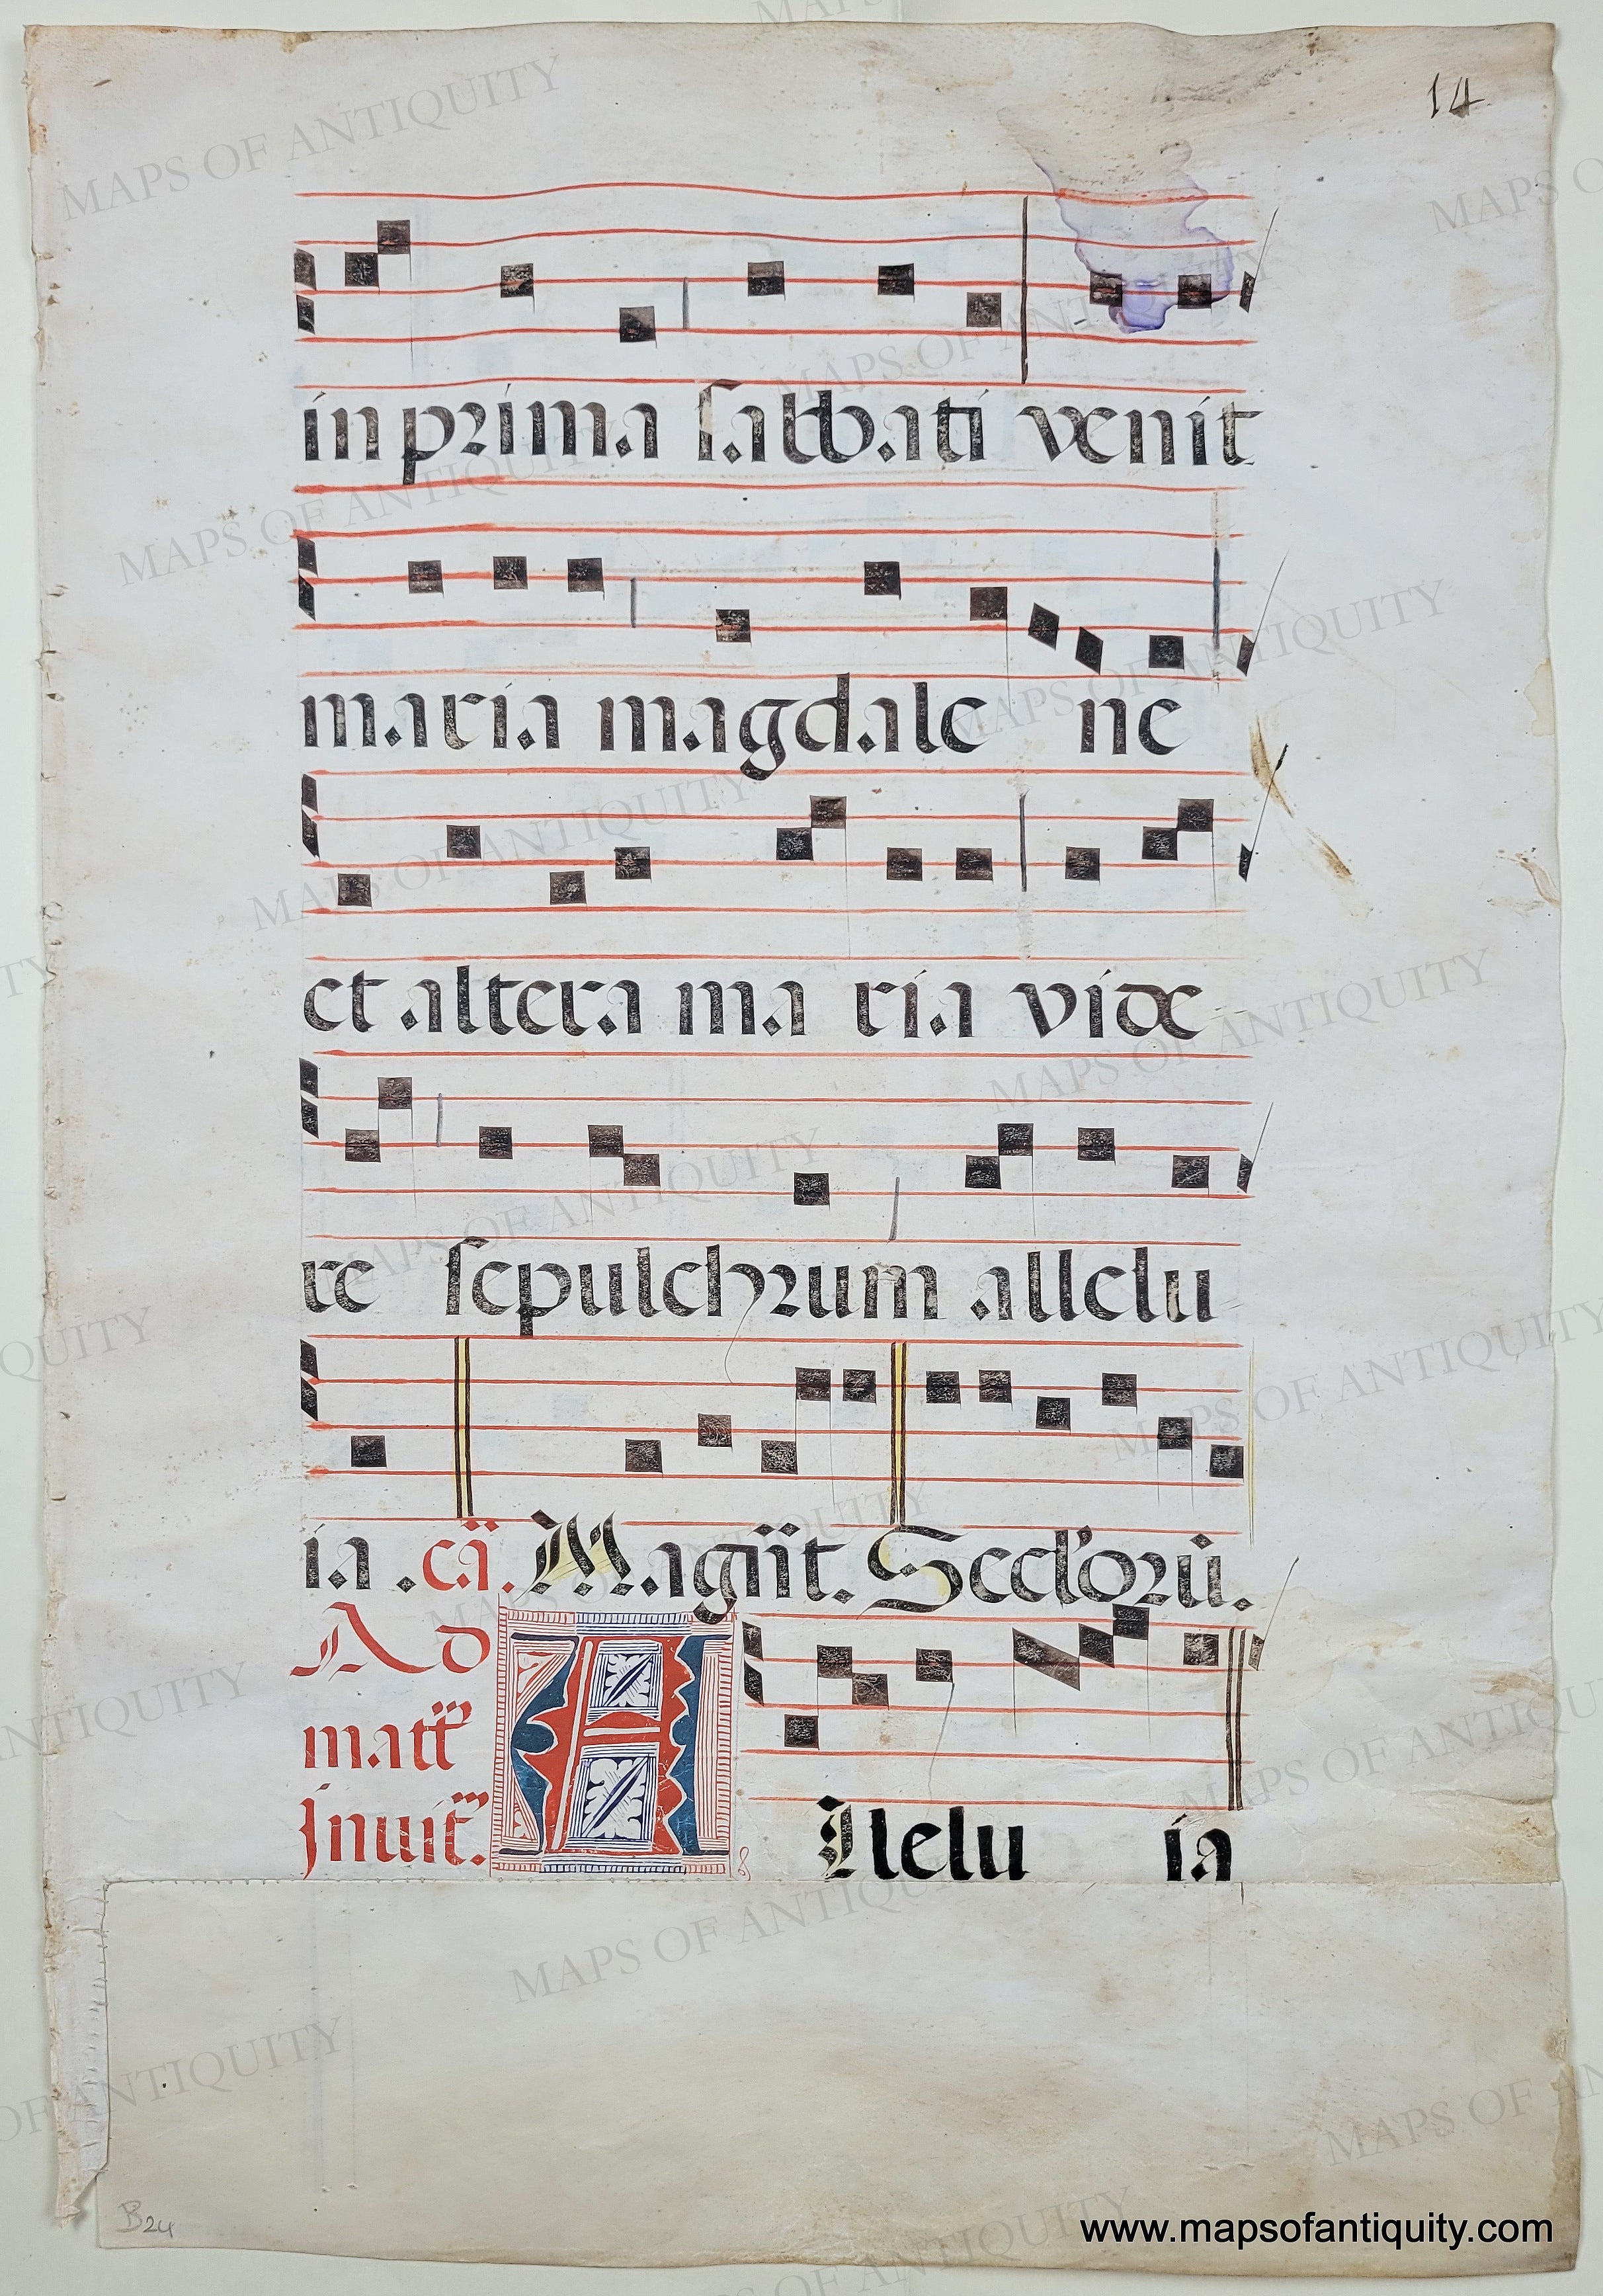 14
in prima sabbati venit
maria magdale ne
et altera ma ria vide
re sepulchrum allelu
ia . cã. Magñit. Secl'orũ.
Ad
matt̃
Jnuit̃.
A llelu ia
B24
MAPS OF ANTIQUITY
www.mapsofantiquity.com